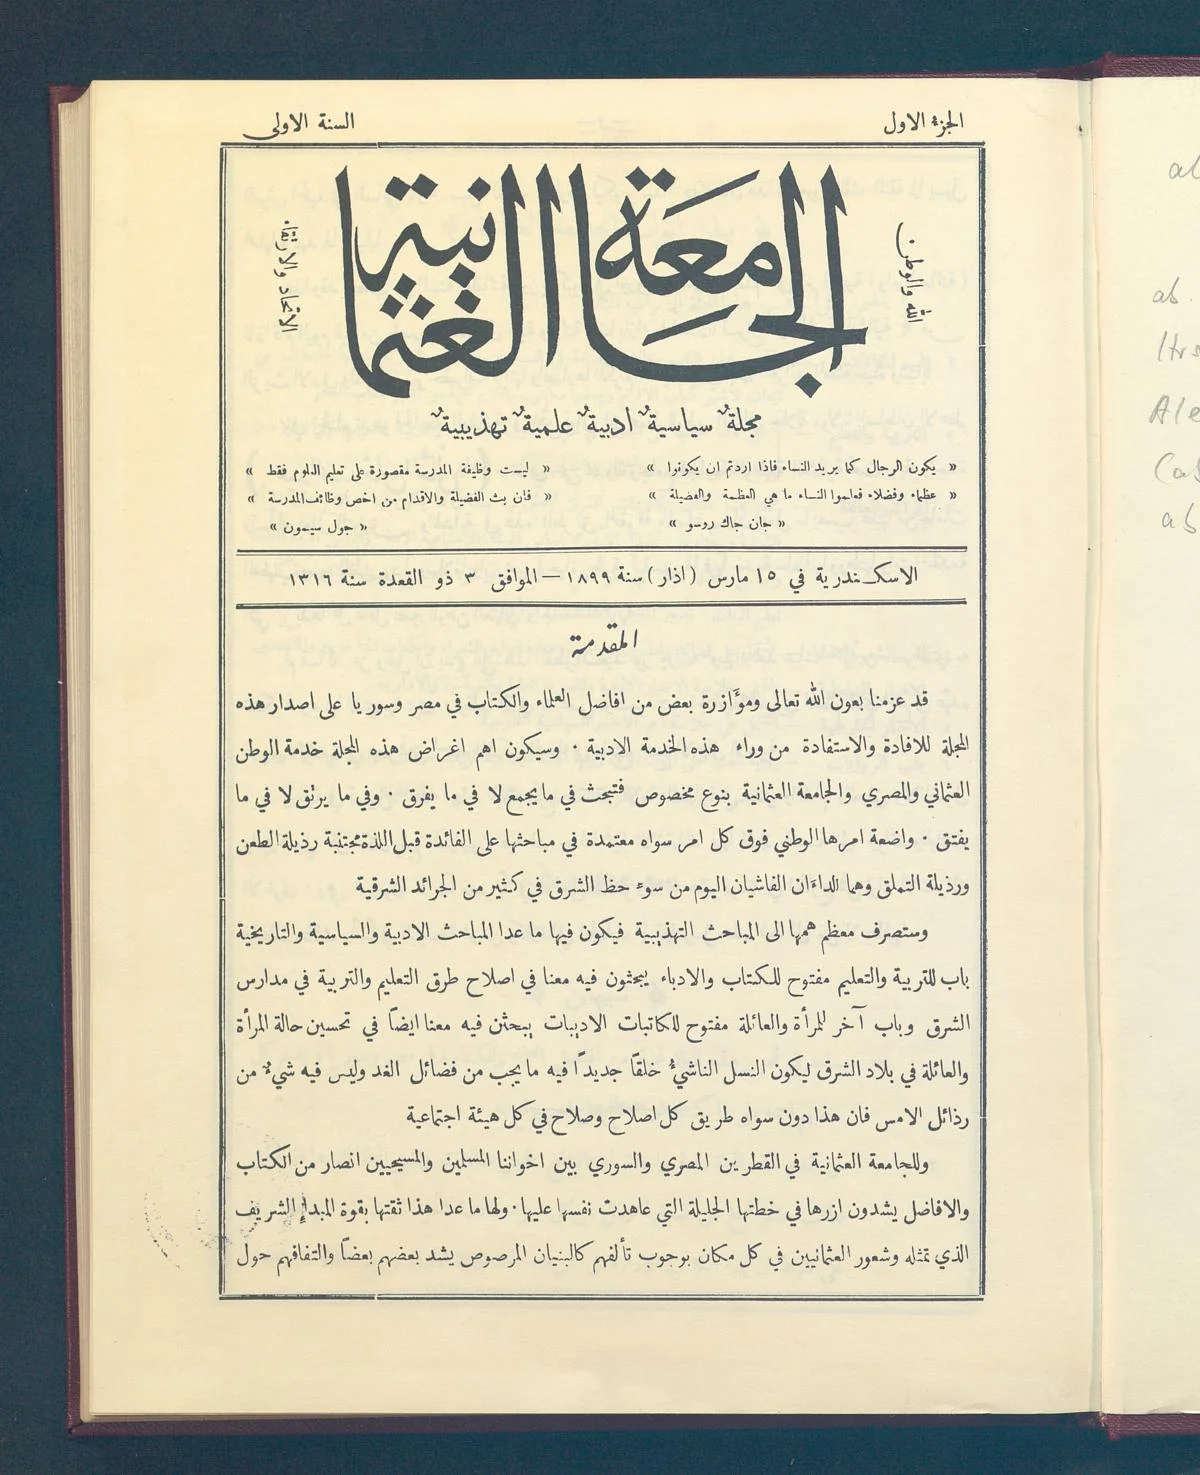 الجزء الاول
السنة الاولى
الجامعة العثمانية
الله والوطن
الاتحاد والارتقاء
مجلةٌ سياسيةٌ ادبيةٌ علميةٌ تهذيبيةٌ
« يكون الرجال كما يريد النساء فاذا اردتم ان يكونوا »
« عظماء وفضلاء فعلموا النساء ما هي العظمة والفضيلة »
« جان جاك روسو »
« ليست وظيفة المدرسة مقصورة على تعليم العلوم فقط »
« فان بث الفضيلة والاقدام من اخص وظائف المدرسة »
« جول سيمون »
الاسكندرية في ١٥ مارس (اذار) سنة ١٨٩٩ — الموافق ٣ ذو القعدة سنة ١٣١٦
المقدمة
قد عزمنا بعون الله تعالى ومؤَازرة بعض من افاضل العلماء والكتاب في مصر وسوريا على اصدار هذه
المجلة للافادة والاستفادة من وراء هذه الخدمة الادبية . وسيكون اهم اغراض هذه المجلة خدمة الوطن
العثماني والمصري والجامعة العثمانية بنوع مخصوص فتبحث في ما يجمع لا في ما يفرق . وفي ما يرتق لا في ما
يفتق . واضعة امرها الوطني فوق كل امر سواه معتمدة في مباحثها على الفائدة قبل اللذة مجتنبة رذيلة الطعن
ورذيلة التملق وهما الداءَان الفاشيان اليوم من سوء حظ الشرق في كثير من الجرائد الشرقية
وستصرف معظم همها الى المباحث التهذيبية فيكون فيها ما عدا المباحث الادبية والسياسية والتاريخية
باب للتربية والتعليم مفتوح للكتاب والادباء يبحثون فيه معنا في اصلاح طرق التعليم والتربية في مدارس
الشرق وباب آخر للمرأة والعائلة مفتوح للكاتبات الاديبات يبحثن فيه معنا ايضاً في تحسين حالة المرأة
والعائلة في بلاد الشرق ليكون النسل الناشيءُ خلقاً جديداً فيه ما يجب من فضائل الغد وليس فيه شيءٌ من
رذائل الامس فان هذا دون سواه طريق كل اصلاح وصلاح في كل هيئة اجتماعية
وللجامعة العثمانية في القطرين المصري والسوري بين اخواننا المسلمين والمسيحيين انصار من الكتاب
والافاضل يشدون ازرها في خطتها الجليلة التي عاهدت نفسها عليها . ولها ما عدا هذا ثقتها بقوة المبدإِ الشريف
الذي تمثله وشعور العثمانيين في كل مكان بوجوب تألفهم كالبنيان المرصوص يشد بعضهم بعضاً والتفافهم حول
ab.